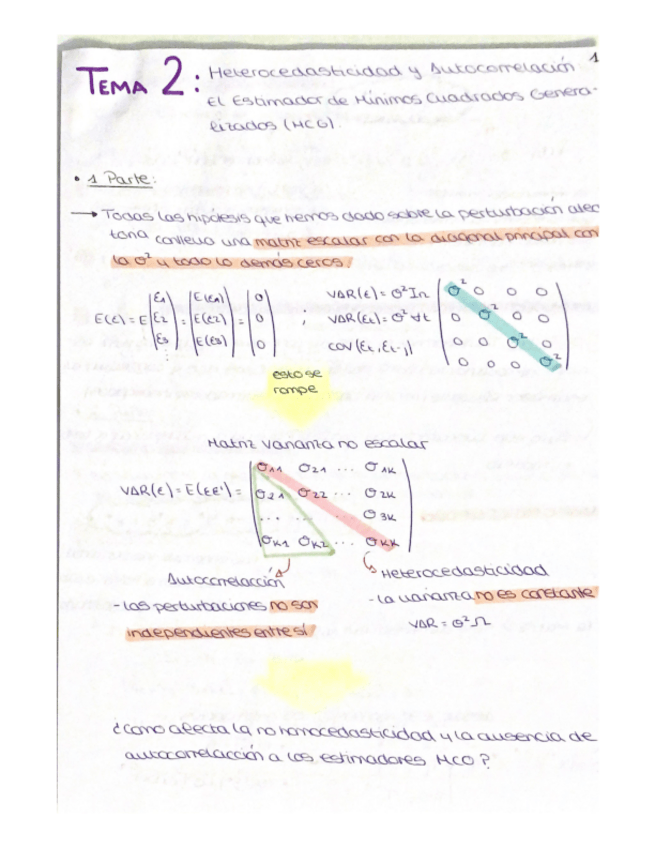 1
TEMA 2: Heterocedasticidad y Autocorrelación
El Estimador de Mínimos Cuadrados Genera-
lizados (MCG).
• 1 Parte:
→ Todas las hipótesis que hemos dado sobre la perturbación aleo
toria conlleva una matriz escalar con la diagonal principal con
la σ² y todo lo demás ceros.
E(ε) = E |ε1 ε2 ε3 ⋮| = |E(ε1) E(ε2) E(ε3)| = |0 0 0| ;
VAR(ε) = σ² In
VAR(εt) = σ² ∀t
cov(εt, εt-j)
σ² 0 0 0
0 σ² 0 0
0 0 σ² 0
0 0 0 σ²
esto se
rompe
Matriz varianza no escalar
VAR(ε) = E(εε') =
σ11 σ21 ... σ1K
σ21 σ22 ... σ2K
. . . . . . σ3K
σK1 σK2 ... σKK
Autocorrelación
- las perturbaciones no son
independientes entre sí
Heterocedasticidad
- la varianza no es constante
VAR = σ²Ω
¿como afecta la no homocedasticidad y la ausencia de
autocorrelación a los estimadores MCO?